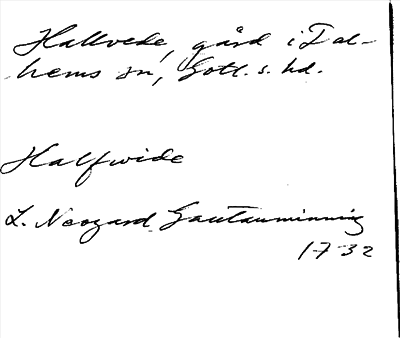 Hallvede, gård i Dal-
hems sn, Gotl. s. hd.
Halfwide
L. Neogard Gautauminning
1732